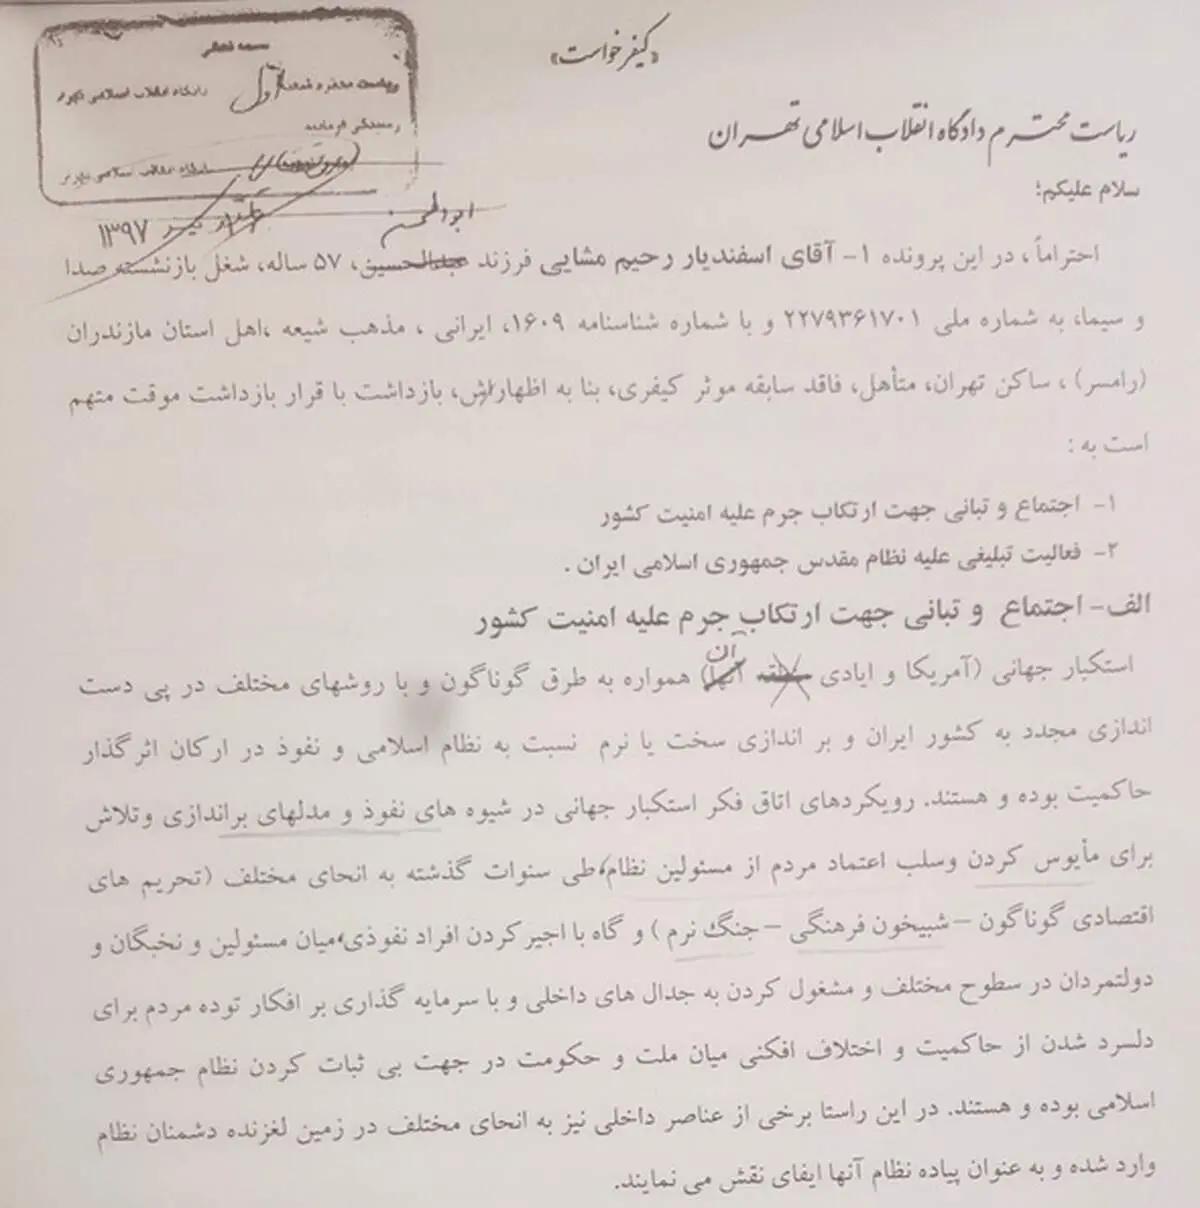 «کیفرخواست»
ریاست محترم شعبه اول دادگاه انقلاب اسلامی تهران
دادگاه انقلاب اسلامی تهران
۱۳۹۷
ریاست محترم دادگاه انقلاب اسلامی تهران
سلام علیکم؛
ابوالحسن
احتراماً، در این پرونده ۱- آقای اسفندیار رحیم مشایی فرزند عبدالحسین، ۵۷ ساله، شغل بازنشسته صدا
و سیما، به شماره ملی ۲۲۷۹۳۶۱۷۰۱ و با شماره شناسنامه ۱۶۰۹، ایرانی ، مذهب شیعه ،اهل استان مازندران
(رامسر) ، ساکن تهران، متأهل، فاقد سابقه موثر کیفری، بنا به اظهاراتش، بازداشت با قرار بازداشت موقت متهم
است به :
۱- اجتماع و تبانی جهت ارتکاب جرم علیه امنیت کشور
۲- فعالیت تبلیغی علیه نظام مقدس جمهوری اسلامی ایران .
الف- اجتماع و تبانی جهت ارتکاب جرم علیه امنیت کشور
استکبار جهانی (آمریکا و ایادی آنها آن) همواره به طرق گوناگون و با روشهای مختلف در پی دست
اندازی مجدد به کشور ایران و بر اندازی سخت یا نرم نسبت به نظام اسلامی و نفوذ در ارکان اثرگذار
حاکمیت بوده و هستند. رویکردهای اتاق فکر استکبار جهانی در شیوه های نفوذ و مدلهای براندازی وتلاش
برای مأیوس کردن وسلب اعتماد مردم از مسئولین نظام، طی سنوات گذشته به انحای مختلف (تحریم های
اقتصادی گوناگون –شبیخون فرهنگی –جنگ نرم ) و گاه با اجیرکردن افراد نفوذی، میان مسئولین و نخبگان و
دولتمردان در سطوح مختلف و مشغول کردن به جدال های داخلی و با سرمایه گذاری بر افکار توده مردم برای
دلسرد شدن از حاکمیت و اختلاف افکنی میان ملت و حکومت در جهت بی ثبات کردن نظام جمهوری
اسلامی بوده و هستند. در این راستا برخی از عناصر داخلی نیز به انحای مختلف در زمین لغزنده دشمنان نظام
وارد شده و به عنوان پیاده نظام آنها ایفای نقش می نمایند.